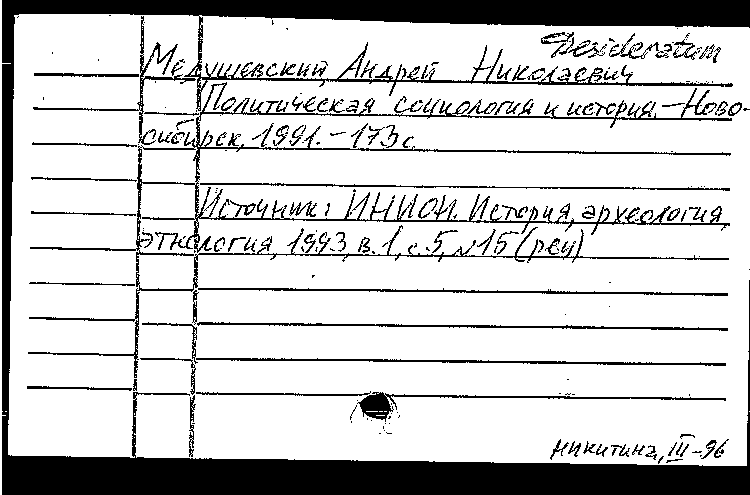 Desideratum
Медушевский, Андрей Николаевич
Политическая социология и история. – Ново-
сибирск, 1991. – 173 с
Источник: ИНИОН. История, археология,
этнология, 1993, в. 1, с. 5, №15 (рец)
Никитина, III – 96